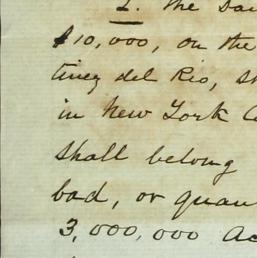 1. The sa
$10,000, on the
tinez del Rio, s
in New York C
shall belong
bad, or quan
3,000,000 ac